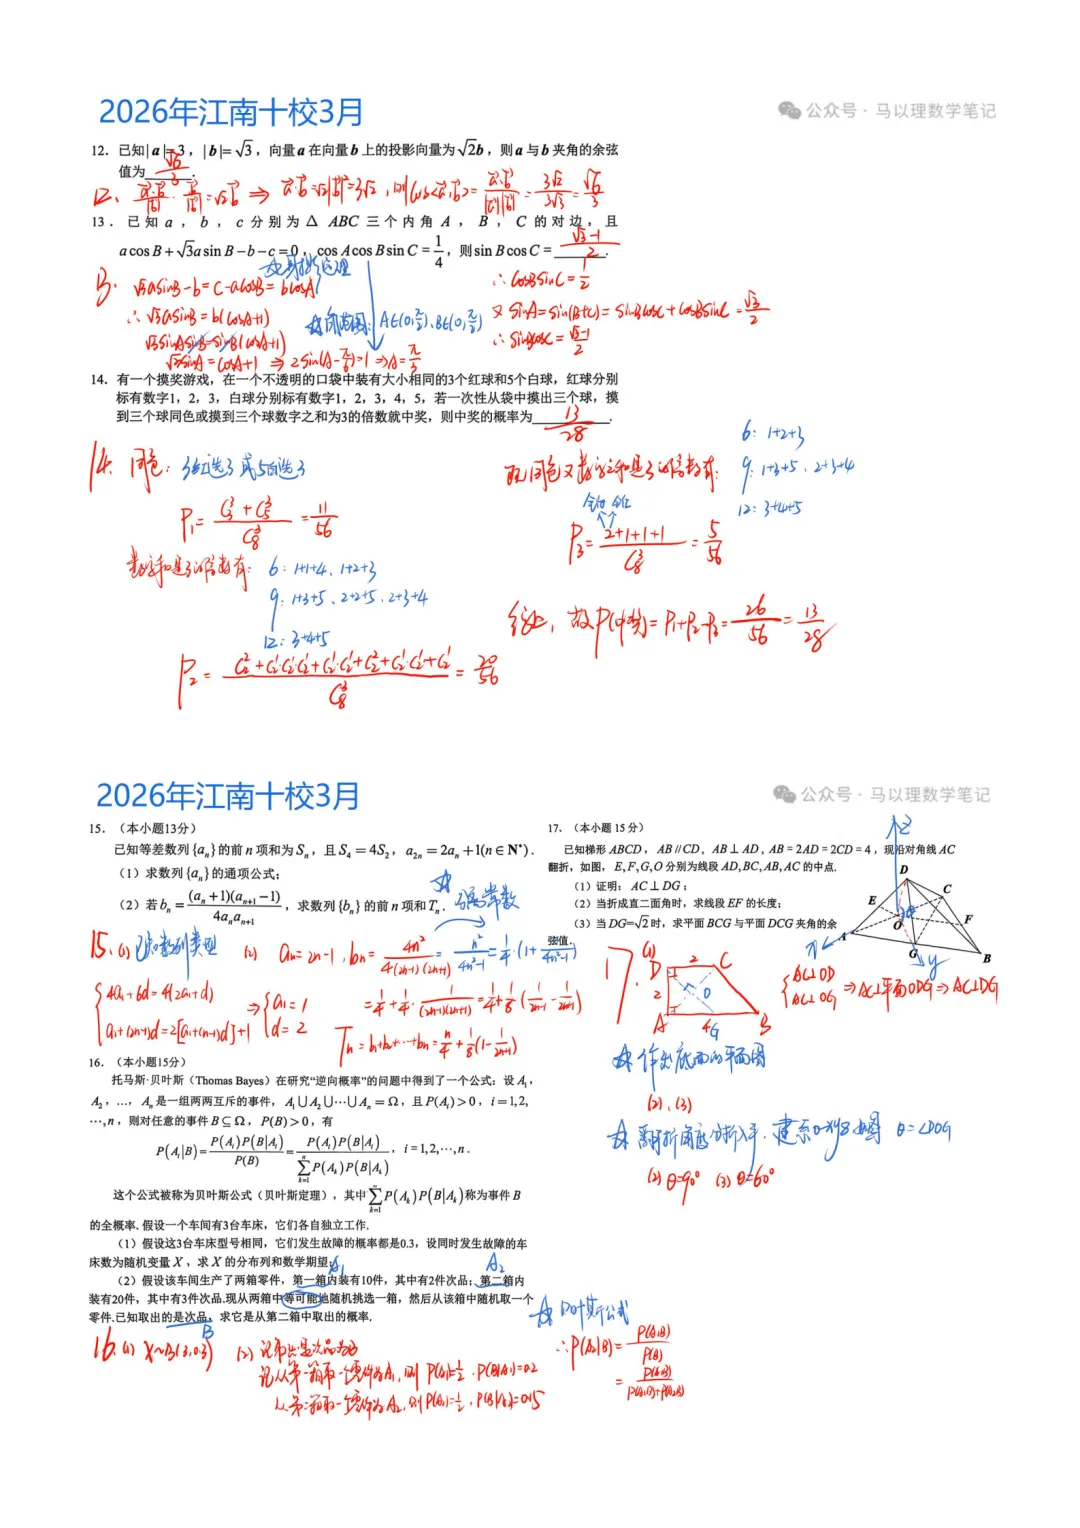 2026年江南十校3月
公众号 · 马以理数学笔记
12. 已知|a|=3，|b|=√3，向量a在向量b上的投影向量为√2b，则a与b夹角的余弦
值为 √6/3 .
12、 a·b/|b| · b/|b| = √2b ⇒ a·b=√2|b|²=3√2，则cos<a,b>= a·b/|a||b| = 3√2/3√3 = √6/3
13. 已知 a，b，c 分别为 Δ ABC 三个内角 A，B，C 的对边，且
acosB+√3asinB−b−c=0，cosAcosBsinC=1/4，则sinBcosC= (√3-1)/2 .
√3asinB-b=c-acosB=bcosA
∴ √3asinB=b(cosA+1)
√3sinAsinB=sinB(cosA+1)
√3sinA=cosA+1 ⇒ 2sin(A-π/6)=1 ⇒ A=π/3
A∈(0,π/2)、B∈(0,π/2)
∴ cosBsinC=1/2
又 sinA=sin(B+C)=sinBcosC+cosBsinC=√3/2
∴ sinBcosC=(√3-1)/2
14. 有一个摸奖游戏，在一个不透明的口袋中装有大小相同的3个红球和5个白球，红球分别
标有数字1，2，3，白球分别标有数字1，2，3，4，5，若一次性从袋中摸出三个球，摸
到三个球同色或摸到三个球数字之和为3的倍数就中奖，则中奖的概率为 13/28 .
14. 同色：3红选3 或5白选3
P₁= (C₃³+C₅³)/C₈³ = 11/56
数字和是3的倍数有： 6：1+1+4、1+2+3
9：1+3+5、2+2+5、2+3+4
12：3+4+5
P₂= (C₂²+C₂¹C₂¹C₂¹+C₂¹·C₂¹+C₂²+C₂¹·C₂¹+C₂¹)/C₈³ = 20/56
既同色又数字之和是3的倍数有：
6：1+2+3
9：1+3+5、2+3+4
12：3+4+5
全白 全红
P₃= (2+1+1+1)/C₈³ = 5/56
综上，故P(中奖)=P₁+P₂-P₃= 26/56 = 13/28
2026年江南十校3月
公众号 · 马以理数学笔记
15. （本小题13分）
已知等差数列{aₙ}的前n项和为Sₙ，且S₄=4S₂，a₂ₙ=2aₙ+1(n∈N*).
（1）求数列{aₙ}的通项公式；
（2）若bₙ=(aₙ+1)(aₙ₊₁−1)/4aₙaₙ₊₁，求数列{bₙ}的前n项和Tₙ.
分离常数
15. (1) 已知数列类型
{4a₁+6d=4(2a₁+d)
a₁+(2n-1)d=2[a₁+(n-1)d]+1
⇒ {a₁=1
d=2
(2) aₙ=2n-1，bₙ= 4n²/4(2n-1)(2n+1) = n²/(4n²-1) = 1/4·(1+1/(4n²-1))
=1/4+1/4·1/(2n-1)(2n+1)=1/4+1/8(1/(2n-1)-1/(2n+1))
Tₙ=b₁+b₂+···+bₙ=n/4+1/8(1-1/(2n+1))
16. （本小题15分）
托马斯·贝叶斯（Thomas Bayes）在研究“逆向概率”的问题中得到了一个公式：设A₁，
A₂，…，Aₙ是一组两两互斥的事件，A₁∪A₂∪⋯∪Aₙ=Ω，且P(Aᵢ)>0，i=1,2,
⋯,n，则对任意的事件B⊆Ω，P(B)>0，有
P(Aᵢ|B)=P(Aᵢ)P(B|Aᵢ)/P(B)=P(Aᵢ)P(B|Aᵢ)/∑ₖ₌₁ⁿP(Aₖ)P(B|Aₖ)，i=1,2,⋯,n.
这个公式被称为贝叶斯公式（贝叶斯定理），其中∑ₖ₌₁ⁿP(Aₖ)P(B|Aₖ)称为事件B
的全概率. 假设一个车间有3台车床，它们各自独立工作.
（1）假设这3台车床型号相同，它们发生故障的概率都是0.3，设同时发生故障的车
床数为随机变量X，求X的分布列和数学期望；
A₁ A₂
（2）假设该车间生产了两箱零件，第一箱内装有10件，其中有2件次品；第二箱内
装有20件，其中有3件次品.现从两箱中等可能地随机挑选一箱，然后从该箱中随机取一个
零件.已知取出的是次品，求它是从第二箱中取出的概率.
B
16. (1) X~B(3,0.3)
(2) 记取出是次品为B
记从第一箱取一零件为A₁，则P(A₁)=1/2，P(B|A₁)=0.2
从第二箱取一零件为A₂，则P(A₂)=1/2，P(B|A₂)=0.15
贝叶斯公式
∴ P(A₂|B)= P(A₂B)/P(B)
= P(A₂B)/P(A₁B)+P(A₂B)
17. （本小题 15 分）
已知梯形ABCD，AB∥CD，AB⊥AD，AB=2AD=2CD=4，现沿对角线AC
翻折，如图，E,F,G,O分别为线段AD,BC,AB,AC的中点.
（1）证明：AC⊥DG；
（2）当折成直二面角时，求线段EF的长度；
（3）当DG=√2时，求平面BCG与平面DCG夹角的余
弦值.
z
D
C
E
F
O
A
G
B
x
y
17. (1)
D 2 C
2 O
A 4 G B
{AC⊥OD
AC⊥OG ⇒ AC⊥平面ODG ⇒ AC⊥DG
作出底面的平面图
(2)、(3)
翻折角度 建系O-xyz θ=∠DOG
(2) θ=90° (3) θ=60°